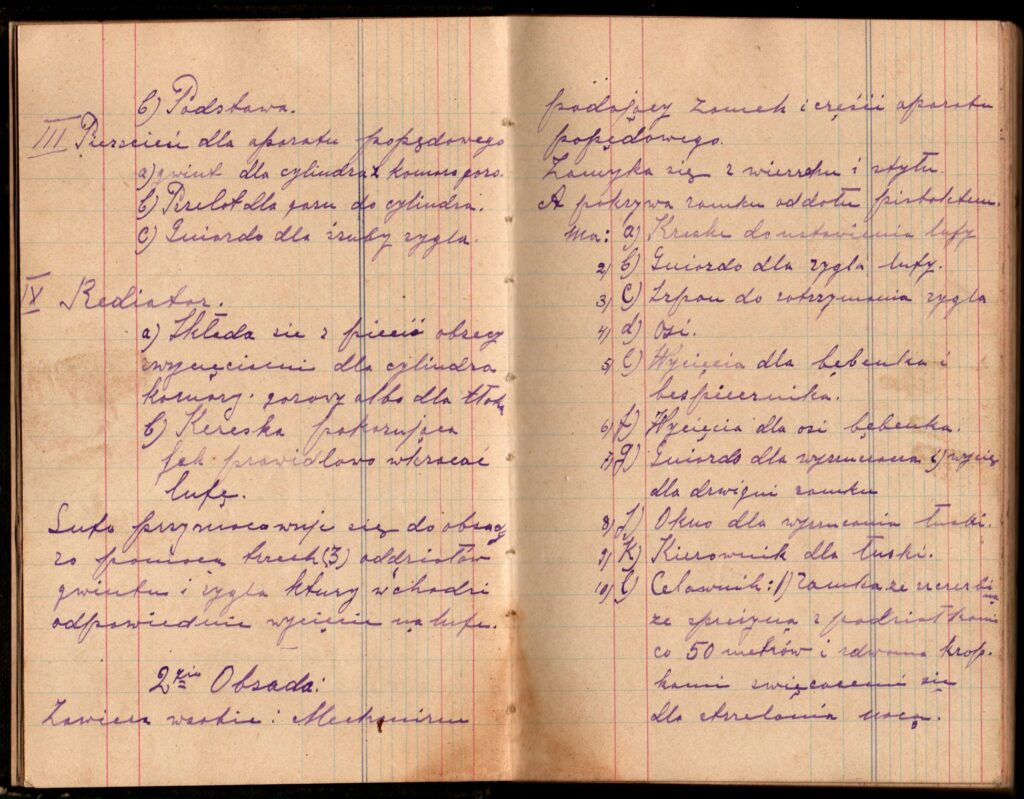 b) Podstawa.
III Pierscień dla aparatu popędowego
a) gwint dla cylindra z komorą gazo.
b) Przelot dla gazu do cylindra.
c) Gniazdo dla śruby rygla.
IV Rediator.
a) Składa sie z pięció obręcy
zwycięciami dla cylindra
komory gazowy albo dla tłoka
b) Kreska pokazująca
jak prawidlowo wkracać
lufę.
Lufa przymocowuje się do obsady
za pomocą trzech (3) oddziałów
gwintu i rygla ktury wchodzi
odpowiednie wycięcie na lufie.
2gie Obsada:
Zawiera wsobie: Mechanizm
podający zamek i części aparatu
popędowego.
Zamyka się z wierzchu i stylu.
A pokrywa zamku oddołu pistoletem.
Ma: a) Kreskę do ustawienia lufy
2) b) Gniazdo dla rygla lufy.
3) c) Szpon do zatrzymania rygla
4) d) osi.
5) e) Wycięcia dla bębenka i
bespiecznika.
6) f) Wycięcia dla osi bębenka.
7) g) Gniazdo dla wyrzucania
dla dzwigni zamku
8) j) Okno dla wyrzucania łuski.
9) k) Kierownik dla łuski.
10) l) Celownik: 1) ramka ze
ze sprężyną z podziałkami
co 50 metrów i zdwoma krop-
kami swięcacemi się
dla strzelania nocą.